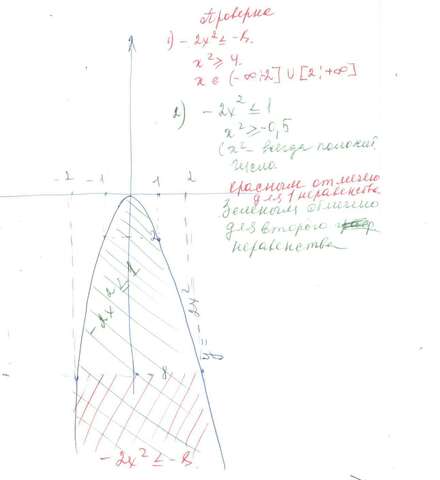 Проверка
1) - 2x² ≤ -8.
x² ≥ 4.
x ∈ (-∞; 2] ∪ [2; +∞]
2) - 2x² ≤ 1
x² ≥ -0,5
(x² - всегда положит
число
красным отмечено
для 1 неравенства
Зеленым отмечено
для второго
неравенства
-2 -1 1 2
-2x² ≤ 1
y = -2x²
-8
- 2x² ≤ -8.